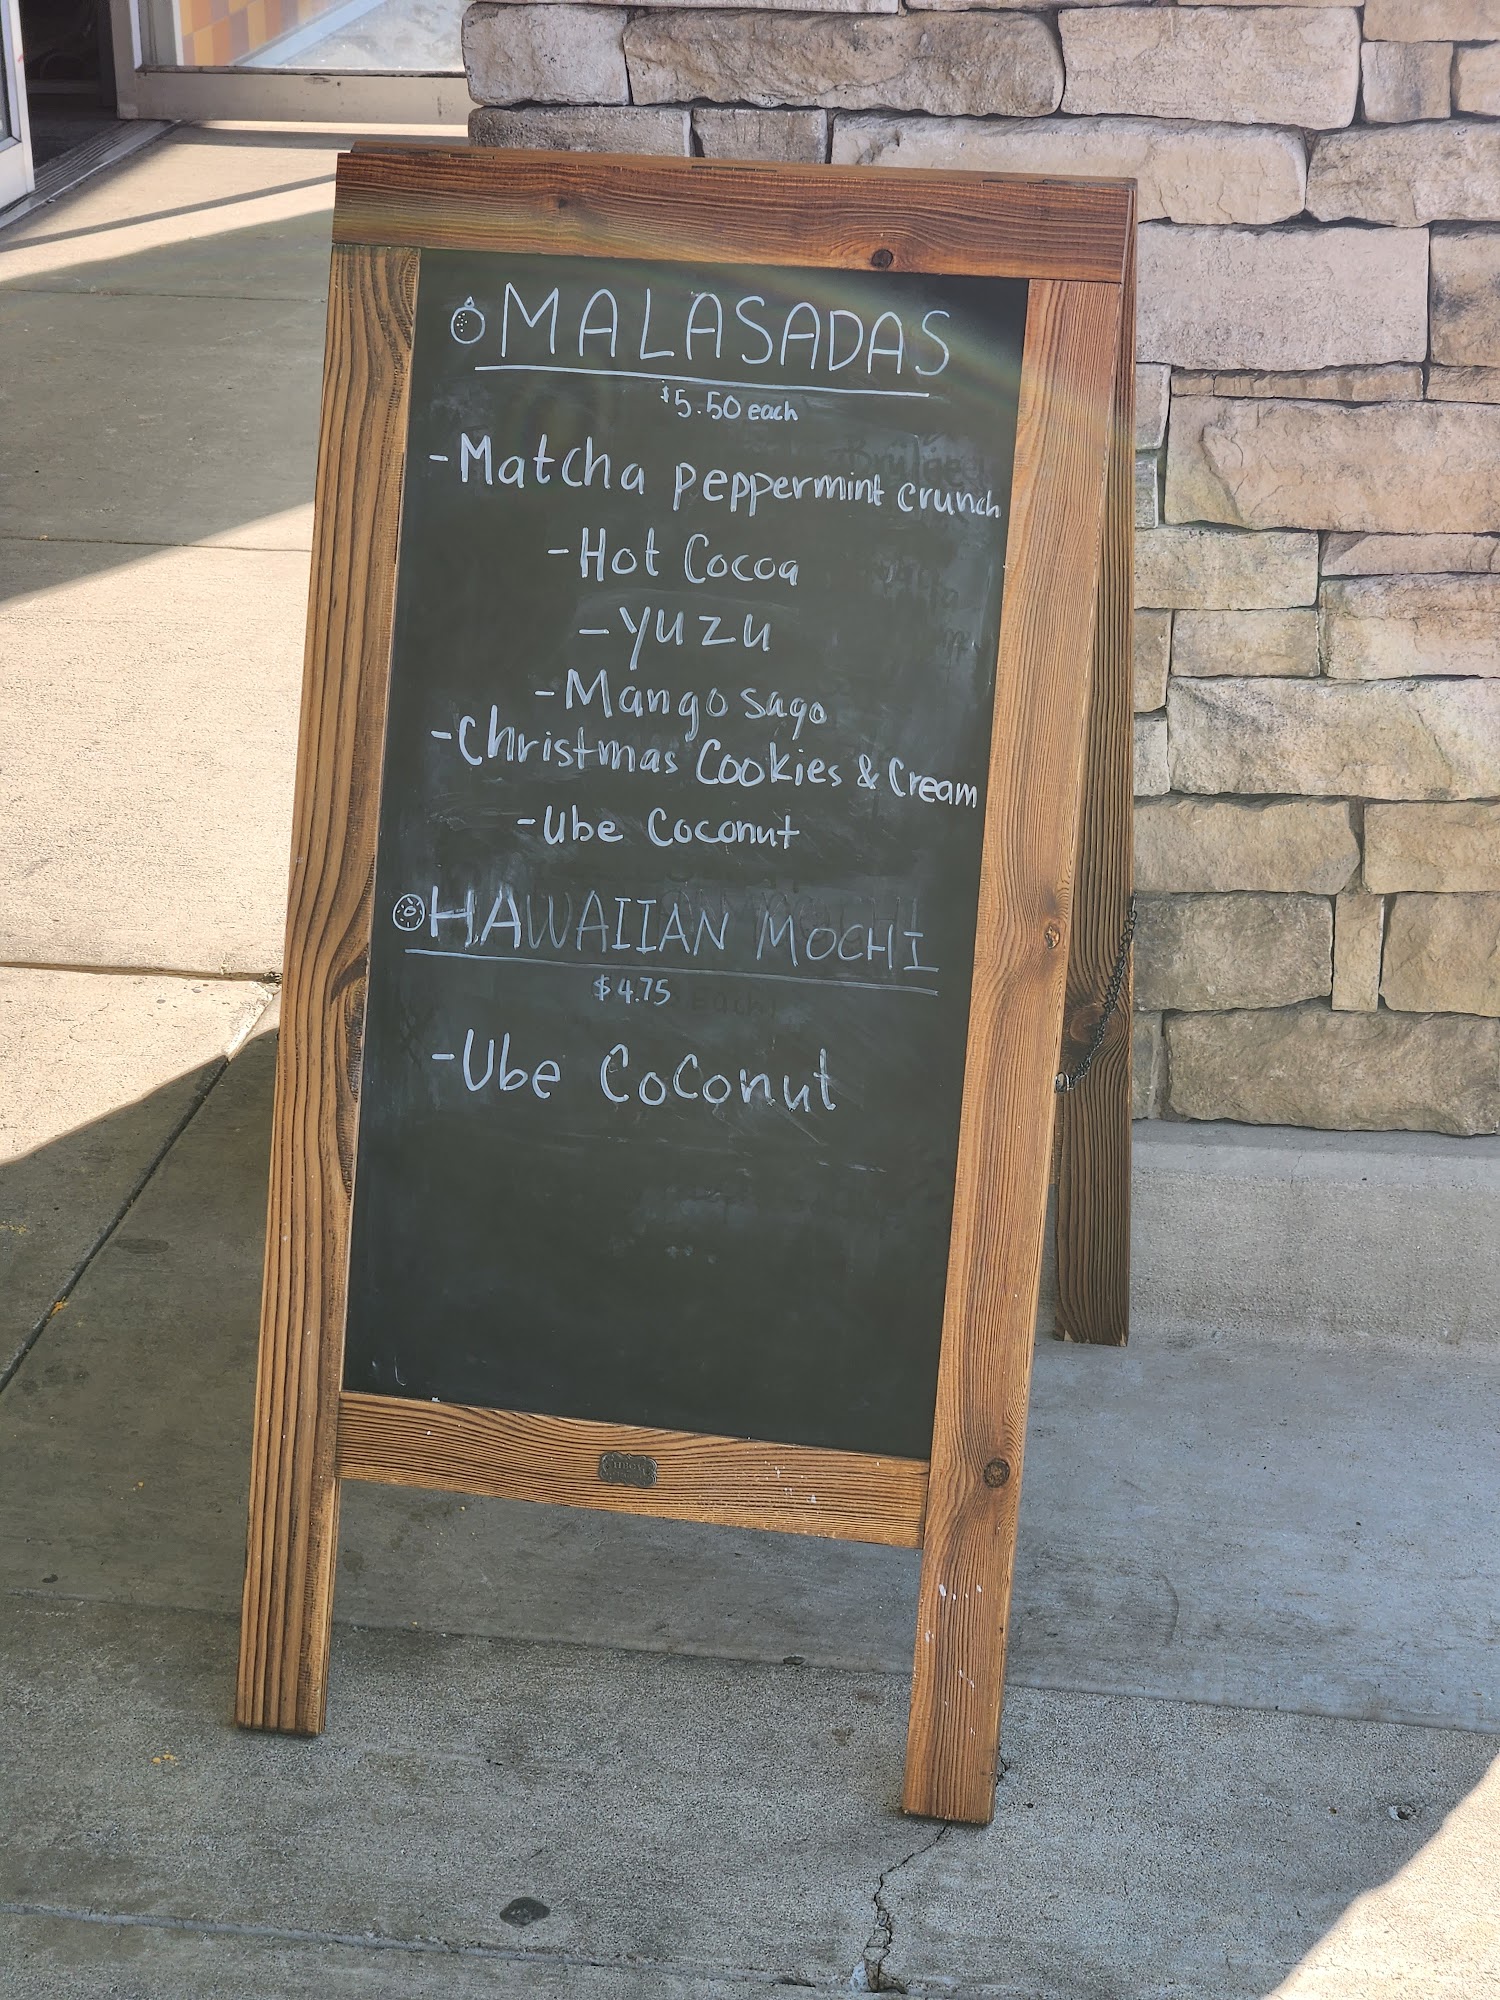 MALASADAS
$5.50 each
-Matcha peppermint crunch
-Hot Cocoa
-YUZU
-Mango sago
-Christmas Cookies & Cream
-Ube Coconut
HAWAIIAN MOCHI
$4.75
-Ube Coconut